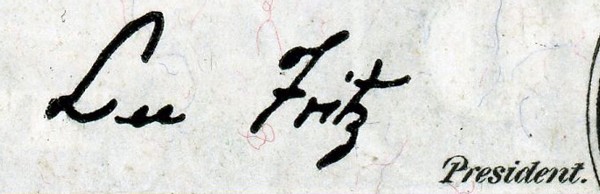 Lee Fritz
President.